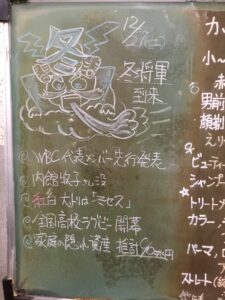 冬
12/27(土)
冬将軍
到来
◎ WBC代表メンバー先行発表
◎ 内館牧子さん没
◎ 紅白 大トリは「ミセス」
◎ 全国高校ラグビー開幕
◎ 家庭の隠れ資産 推計90兆円
カッ
小〜
男前
顔剃
えり
ビューティ
シャンプ
☆トリート
カラー
パーマ,
ストレート